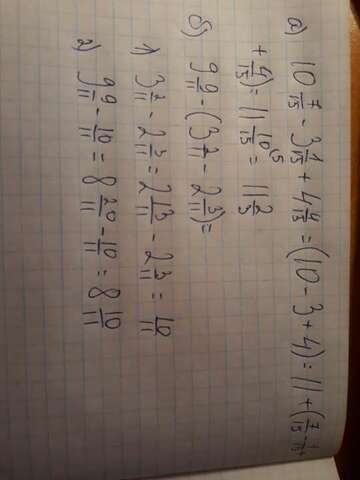 а) 10 7/15 - 3 1/15 + 4 4/15 = (10 - 3 + 4) = 11 + (7/15 - 1/15
+ 4/15) = 11 10/15 = 11 2/3
б) 9 9/11 - (3 2/11 - 2 3/11) =
1) 3 2/11 - 2 3/11 = 2 13/11 - 2 3/11 = 10/11
2) 9 9/11 - 10/11 = 8 20/11 - 10/11 = 8 10/11